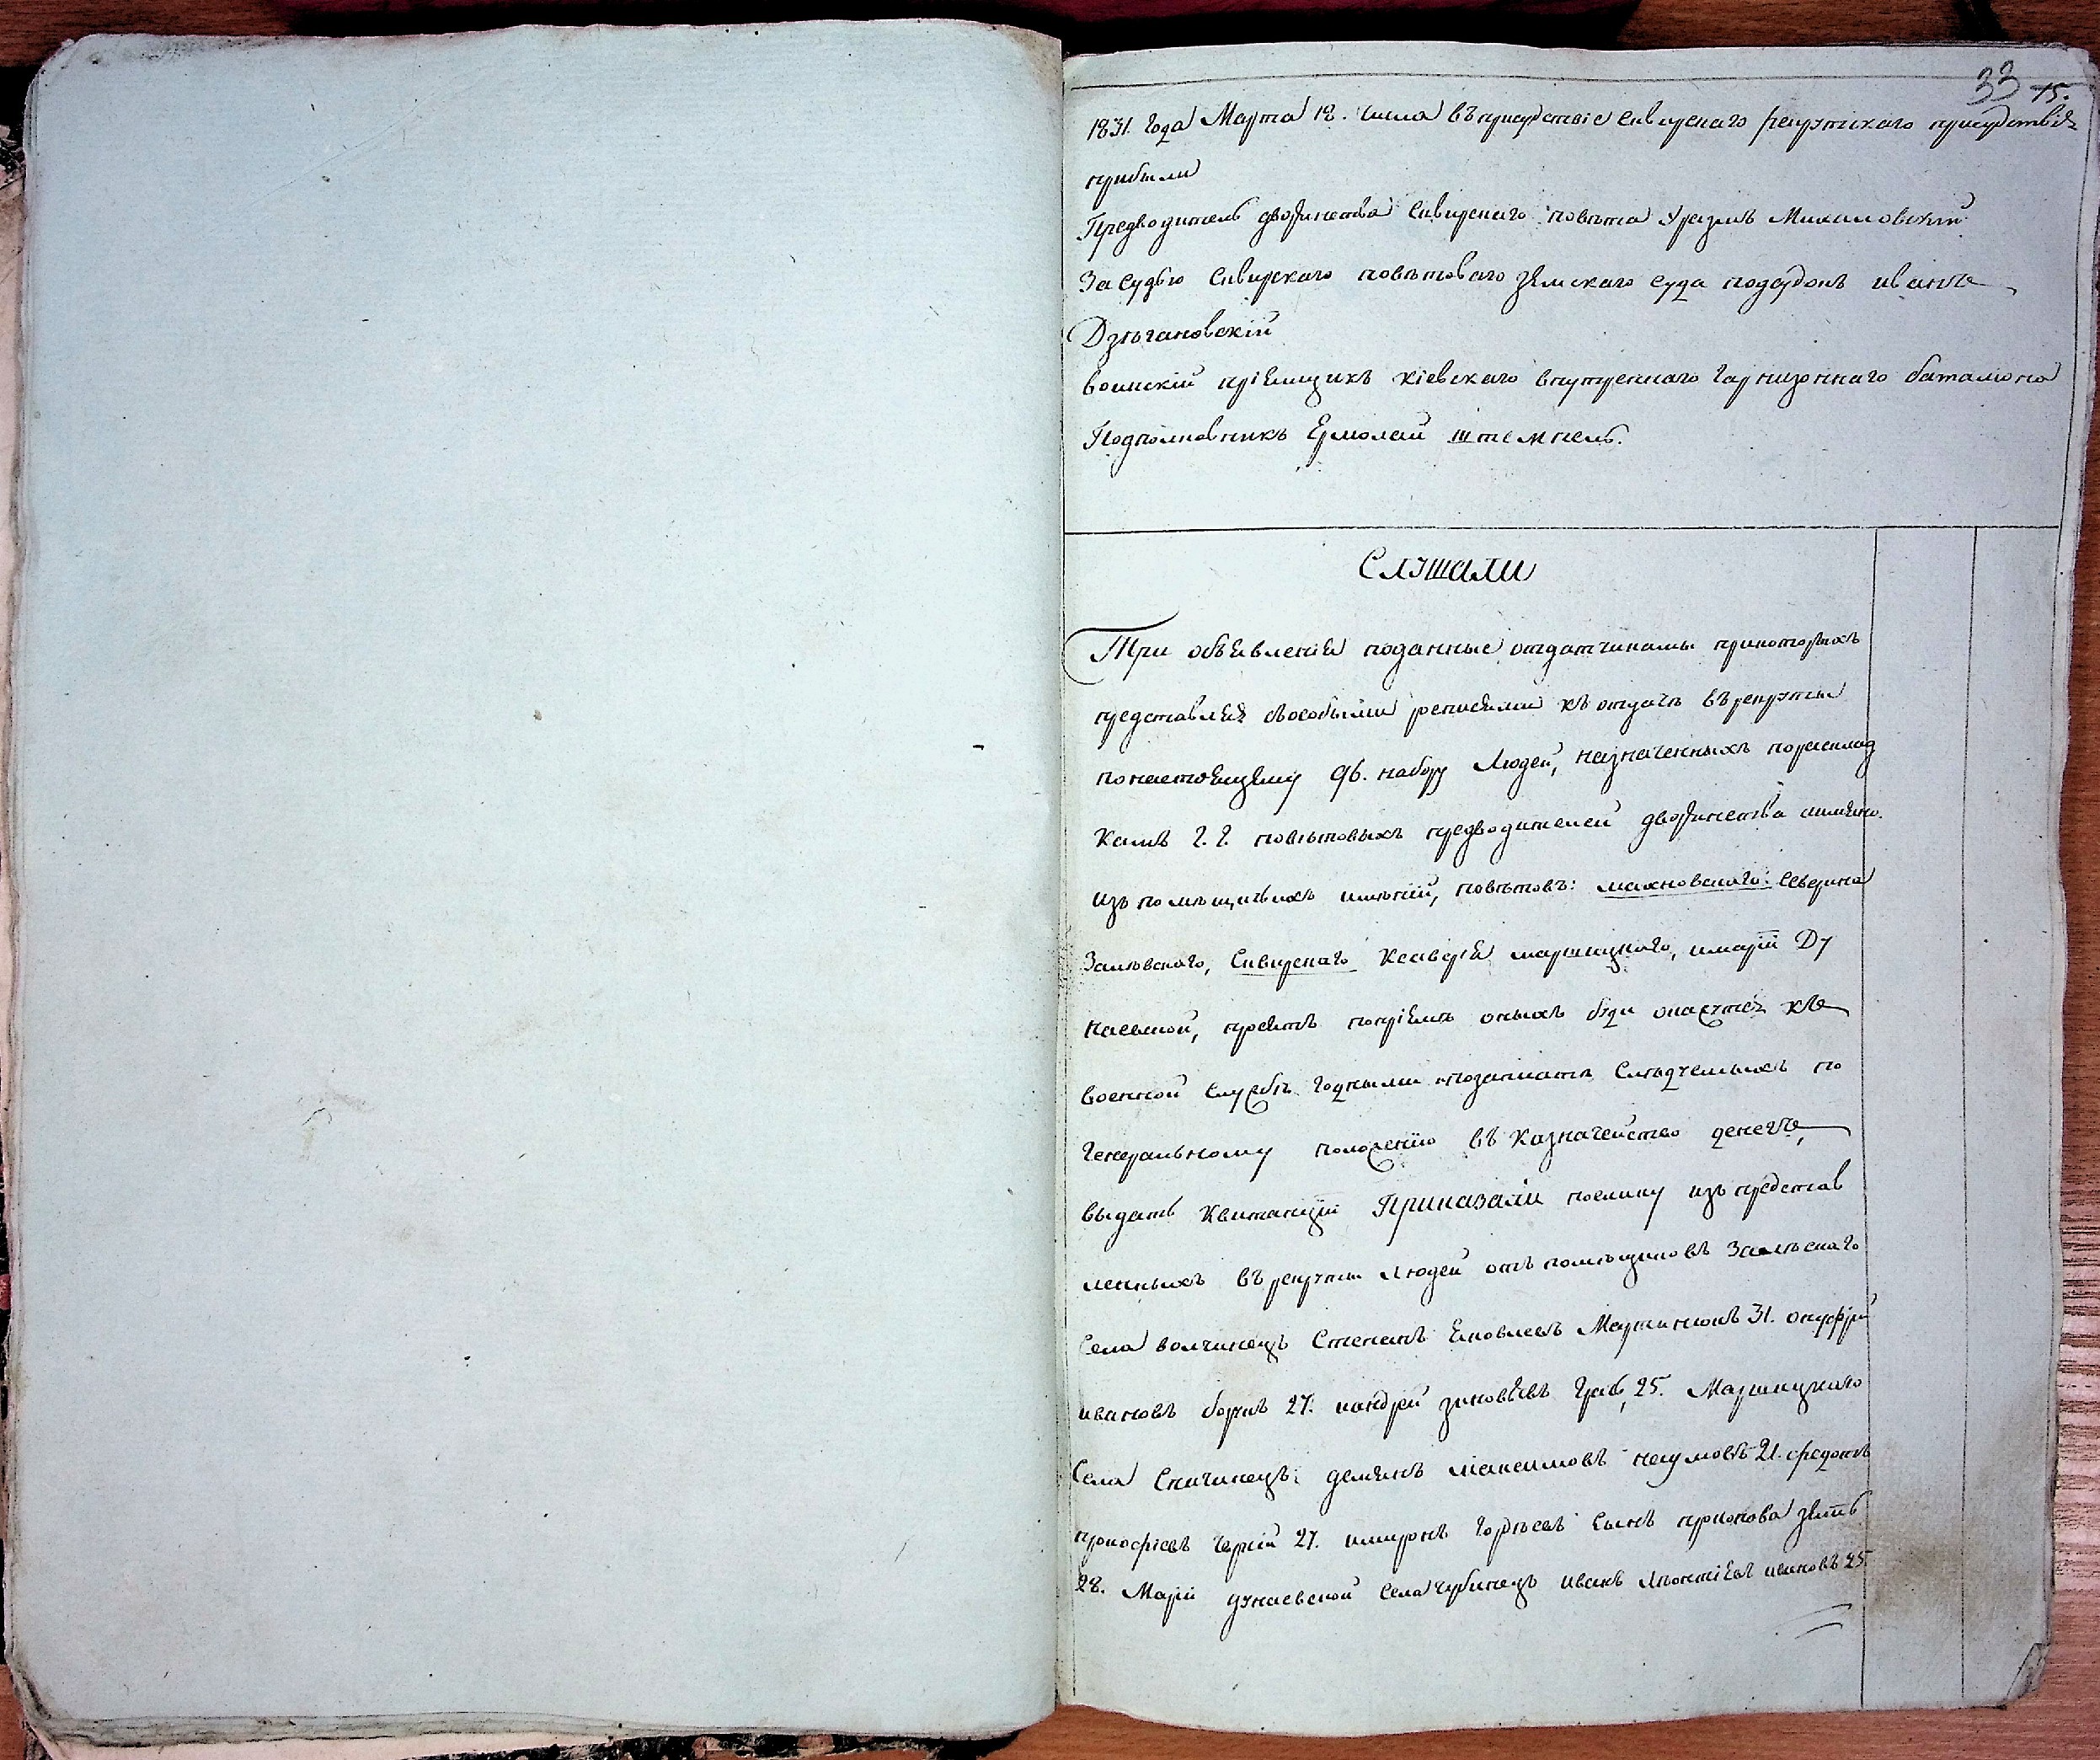 33 15.
1831. Года Марта 18. числа въ присудствіе Сквирскаго рекрутскаго присудствія
прибыли
Предводитель дворянства Сквирскаго повѣта Михаловскій
За судью Сквирскаго повѣтоваго земскаго суда подсудокъ иванъ
Дзюгановскій
воинскій пріемщикъ кіевскаго внутреннаго гарнизоннаго баталіона
Подполковникъ Ермолай штемпель.
Слушали
Три объявленія поданные отдатчиками прикоторыхъ
представляя съособыми рописями къ отдачѣ въ рекруты
понастоящему 96. набору людей, назначенныхъ пораскlad
камъ Г. Г. повѣтовыхъ предводителей дворянства имянно.
изъ помѣщичьихъ имѣній, повѣтовъ: махновскаго: Северина
Залѣвскаго, Сквирскаго Ксаверія маршицкаго, имаріи Ду
наевской, просятъ попріемѣ оныхъ буди окажутся къ
военной службѣ годными и позаплатѣ слѣдуемыхъ по
Генеральному положенію въ Казначейство денегъ,
выдать Квитанціи Приказали поелику изъ представ
ленныхъ въ рекруты людей отъ помѣщиковъ Залѣскаго
Села волчинецъ Степанъ Яковлевъ Мартинюкъ 31. онуфрій
ивановъ 27. иандрей зиновьевъ 25. Маршицкаго
Села Спичинецъ: демянъ максимовъ наумовъ 21. федотъ
прокофіевъ чорній 27. имиронъ гордѣевъ сынъ прокопова зять
28. Маріи дунаевской Села чубинецъ иванъ Лѣонтіевъ ивановъ 25